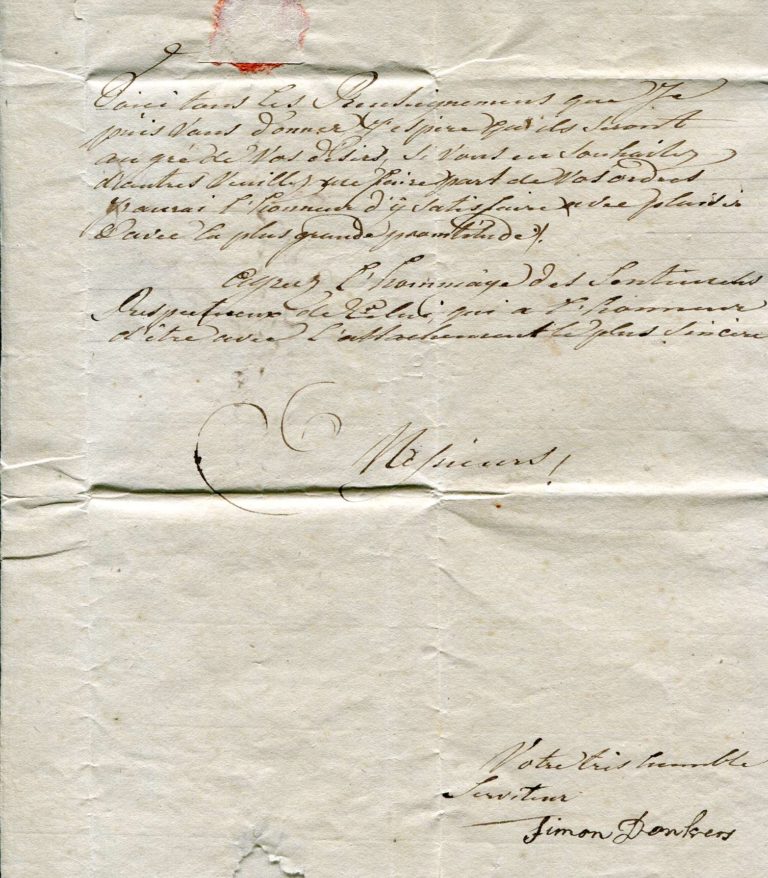 Voici tous les Renseignemens que Je
puis Vous donner J'espere qu'ils seront
au gré de Vos désirs, si Vous en souhaitez
d'autres Veuillez me faire part de Vos ordres
J'aurai l'honneur d'ÿ Satisfaire avec plaisir
& avec la plus grande promtitude.
agreez l'hommage des Sentimens
Respectueux de celui, qui a l'honneur
d'être avec l'attachement le plus Sincere
Messieurs!
Votre tris humble
Serviteur
Simon Donkers